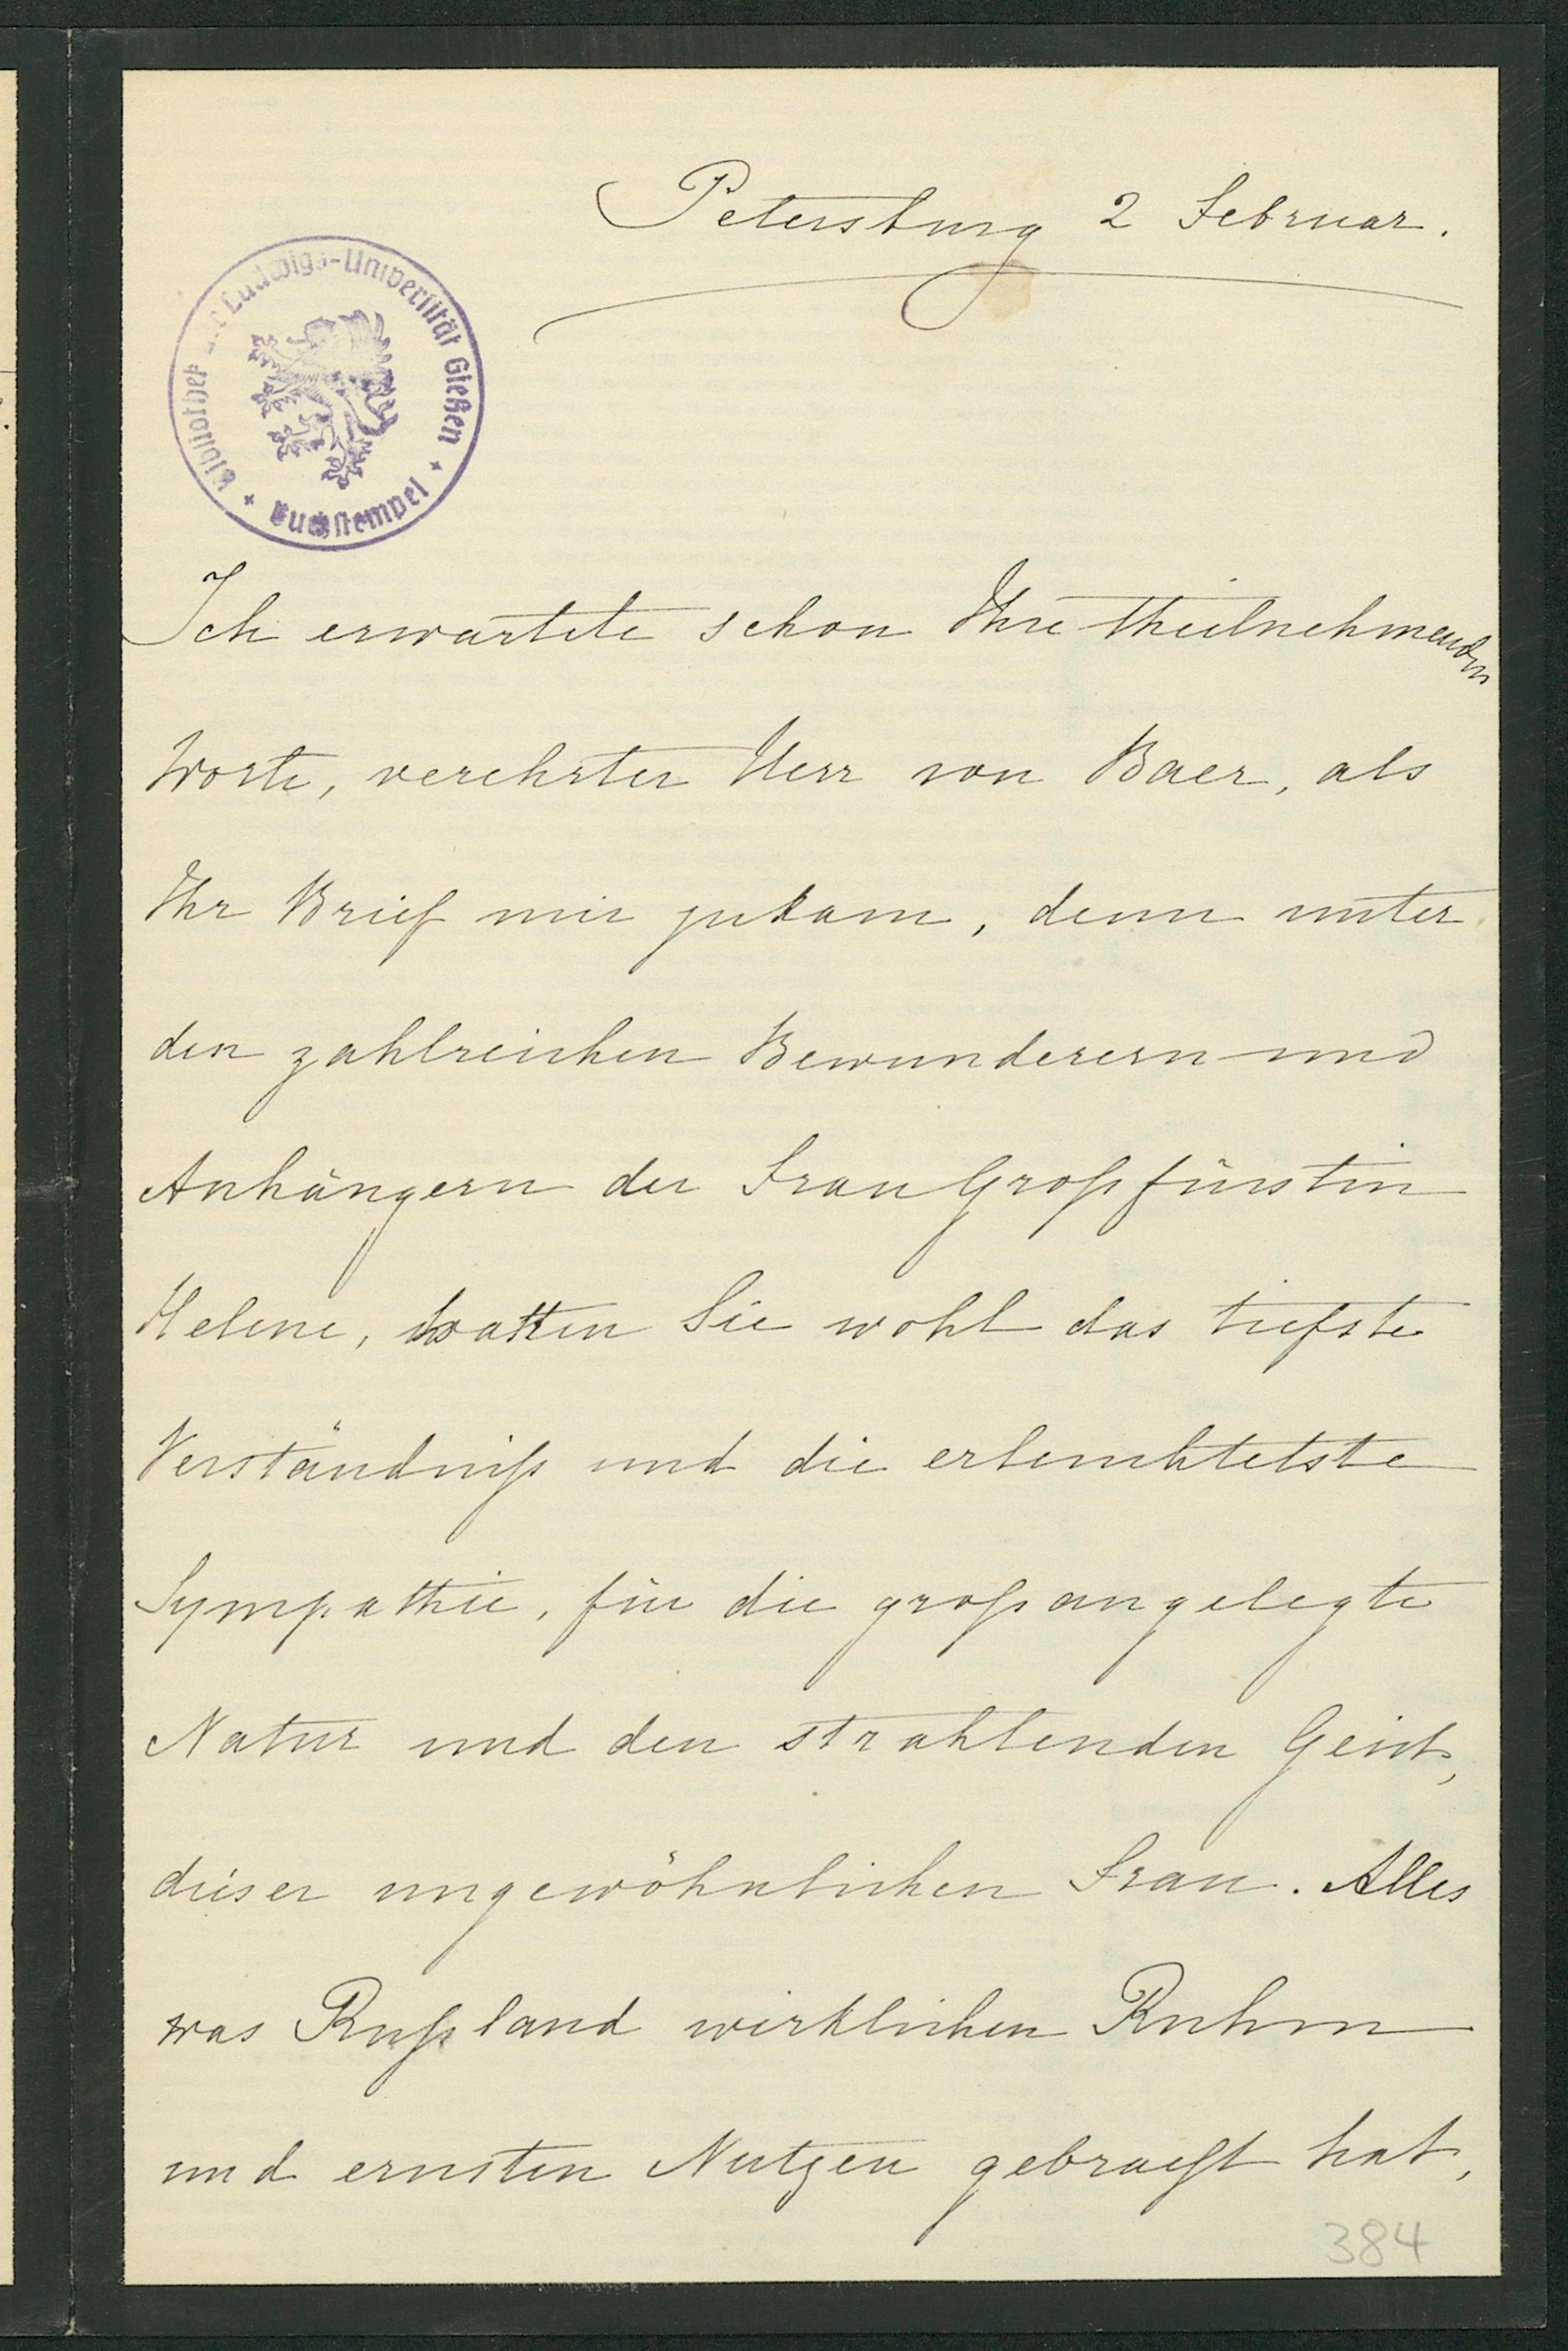 Petersburg 2 Februar.
Bibliothek der Ludwigs-Universität Gießen + Buchstempel +
Ich erwartete schon Ihre theilnehmenden
Worte, verehrter Herr von Baer, als
Ihr Brief mir zukam, denn unter
den zahlreichen Bewunderern und
Anhängern der Frau Großfürstin
Helene, hatten Sie wohl das tiefste
Verständniß und die erleuchtetste
Sympathie, für die großangelegte
Natur und den strahlenden Geist,
dieser ungewöhnlichen Frau. Alles
was Rußland wirklichen Ruhm
und ernsten Nutzen gebracht hat,
384